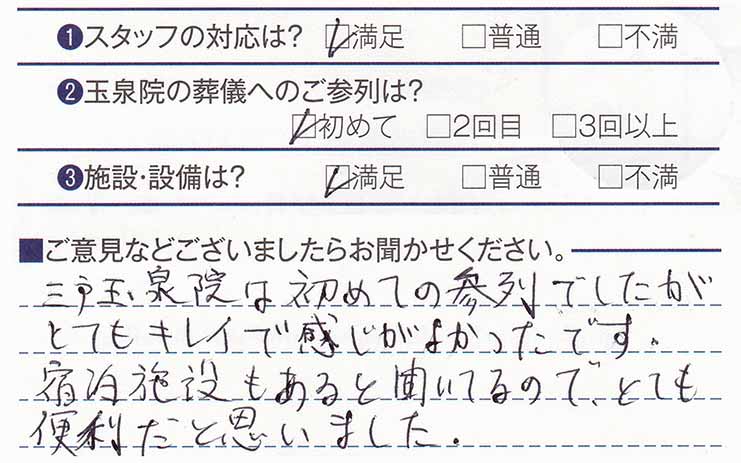 ❶スタッフの対応は? ☑満足 □普通 □不満
❷玉泉院の葬儀へのご参列は?
☑初めて □2回目 □3回以上
❸施設・設備は? ☑満足 □普通 □不満
■ご意見などございましたらお聞かせください。
三戸玉泉院は初めての参列でしたが
とてもキレイで感じがよかったです.
宿泊施設もあると聞いてるので、とても
便利だと思いました.